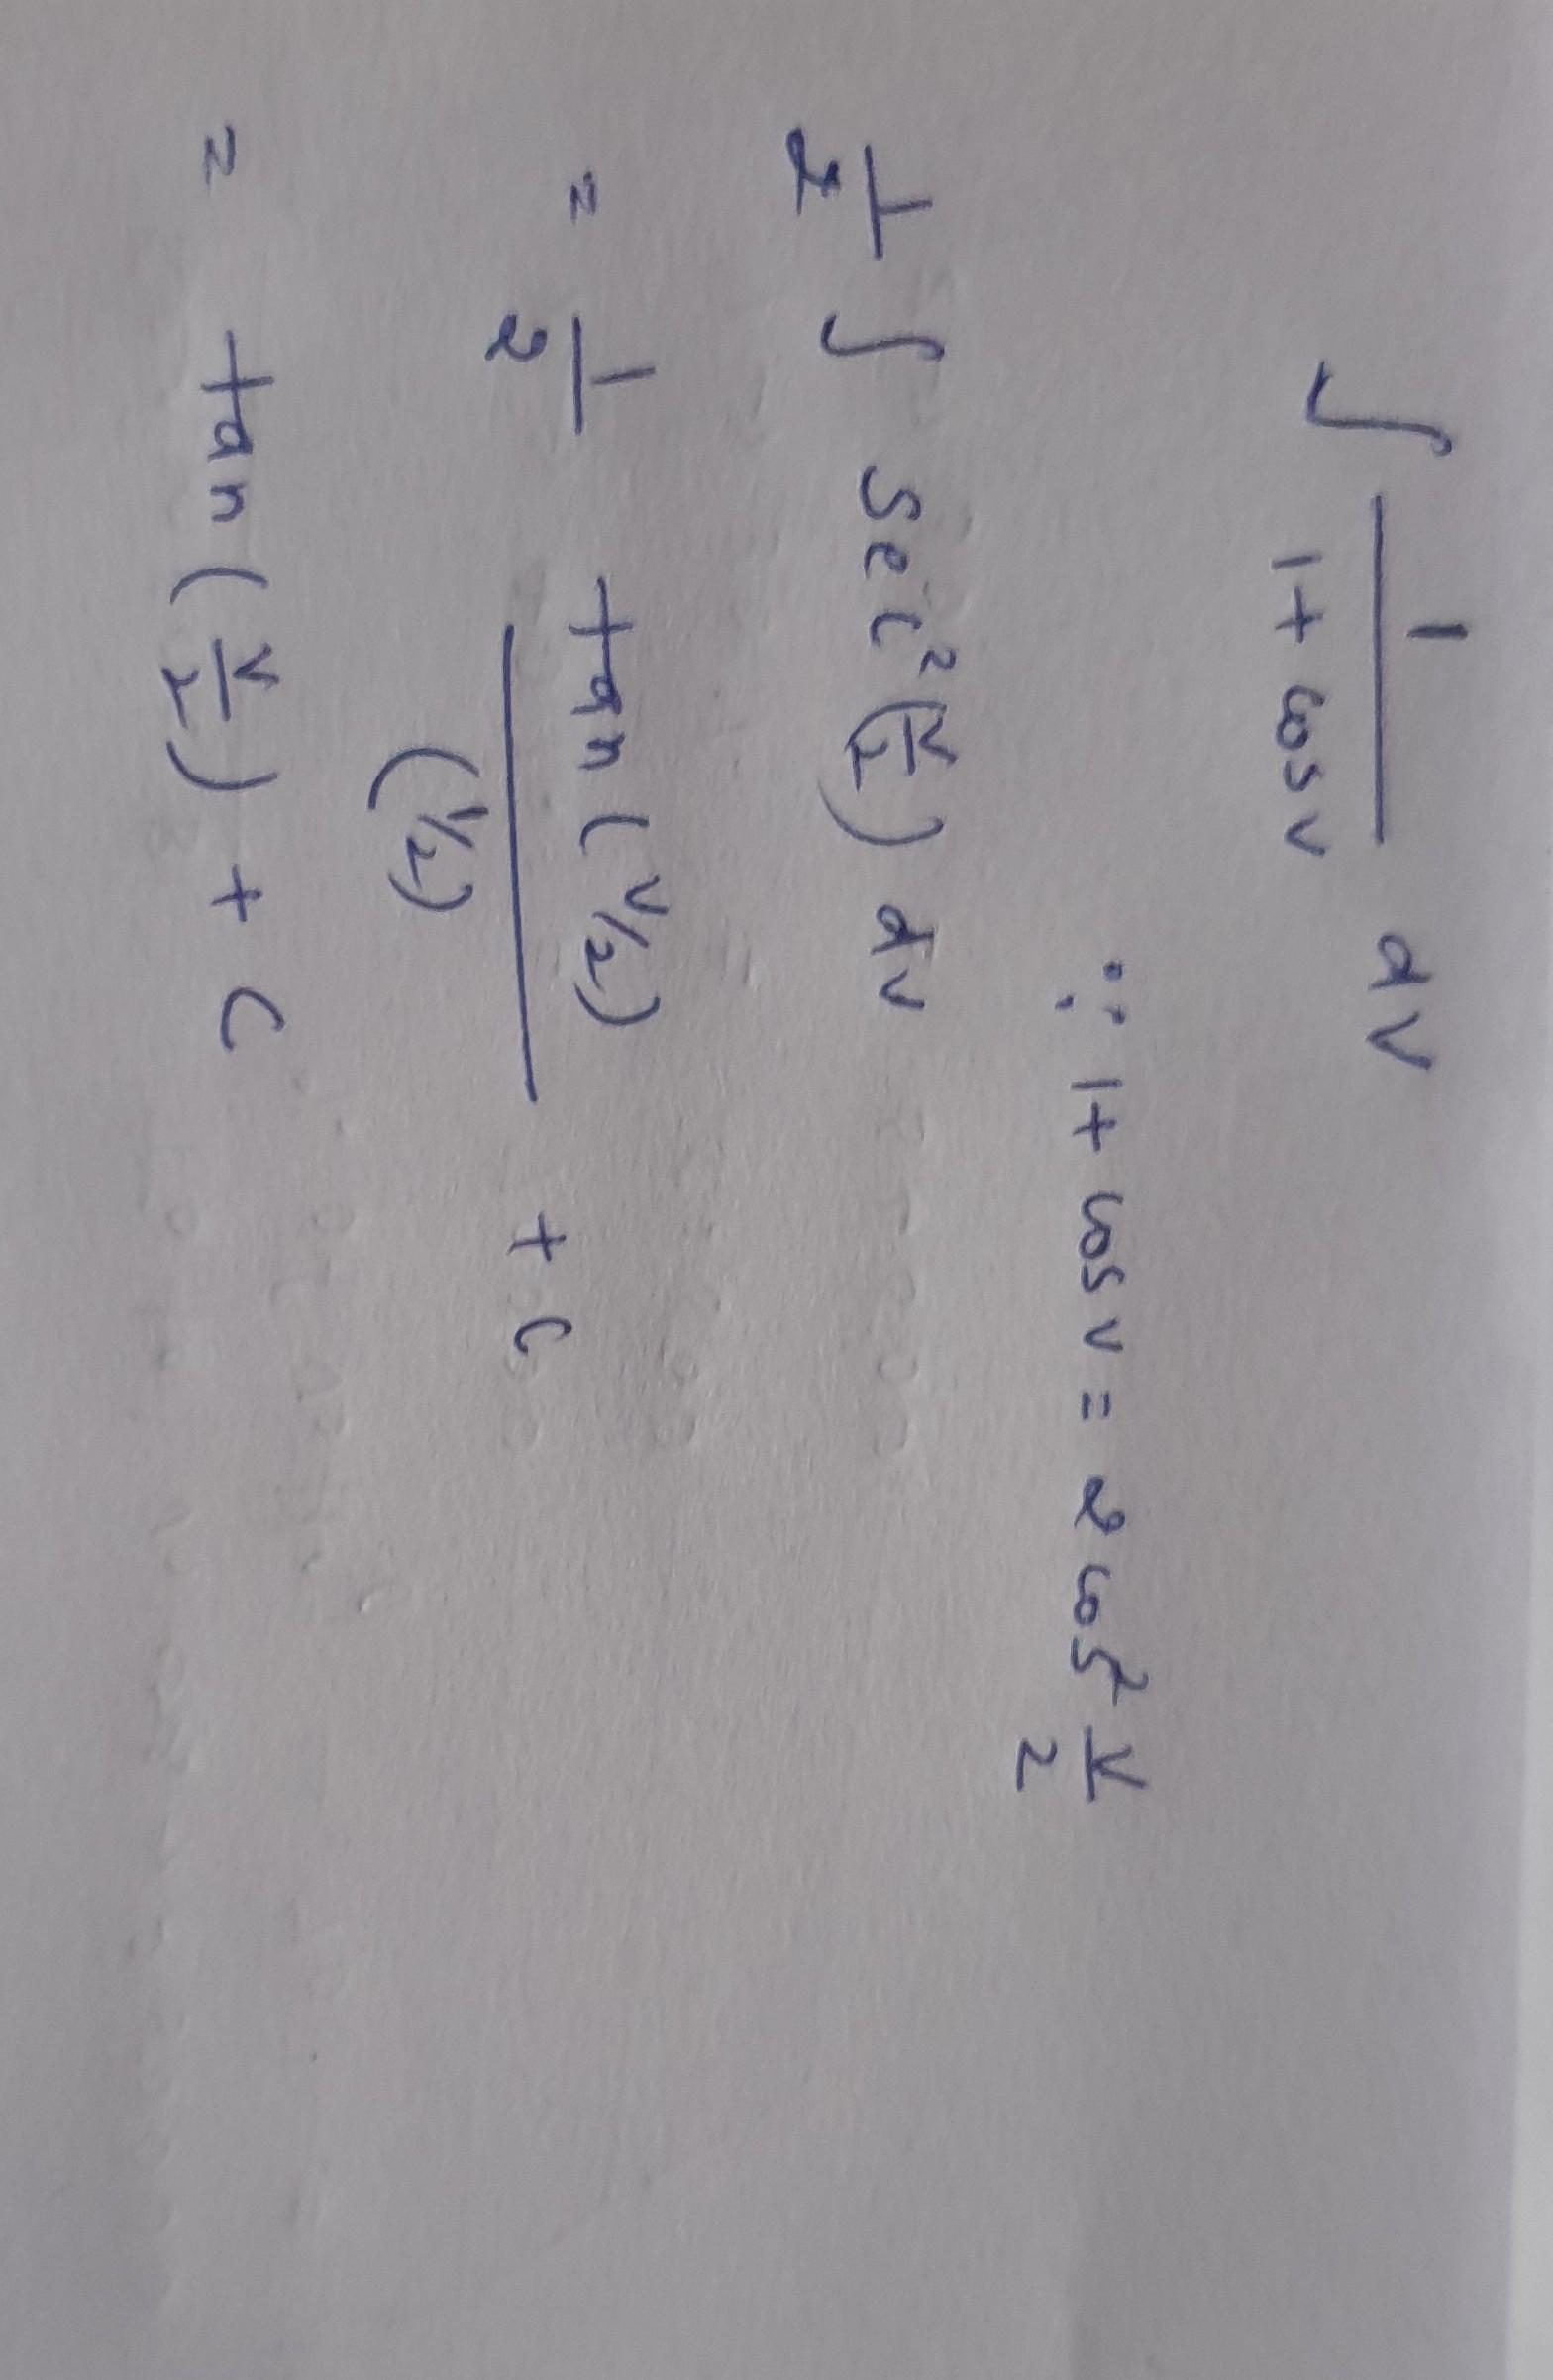 ∫ 1/(1 + cos v) dv
∵ 1 + cos v = 2 cos² v/2
1/2 ∫ Sec² (v/2) dv
= 1/2 tan (v/2)/(1/2) + c
= tan (v/2) + C